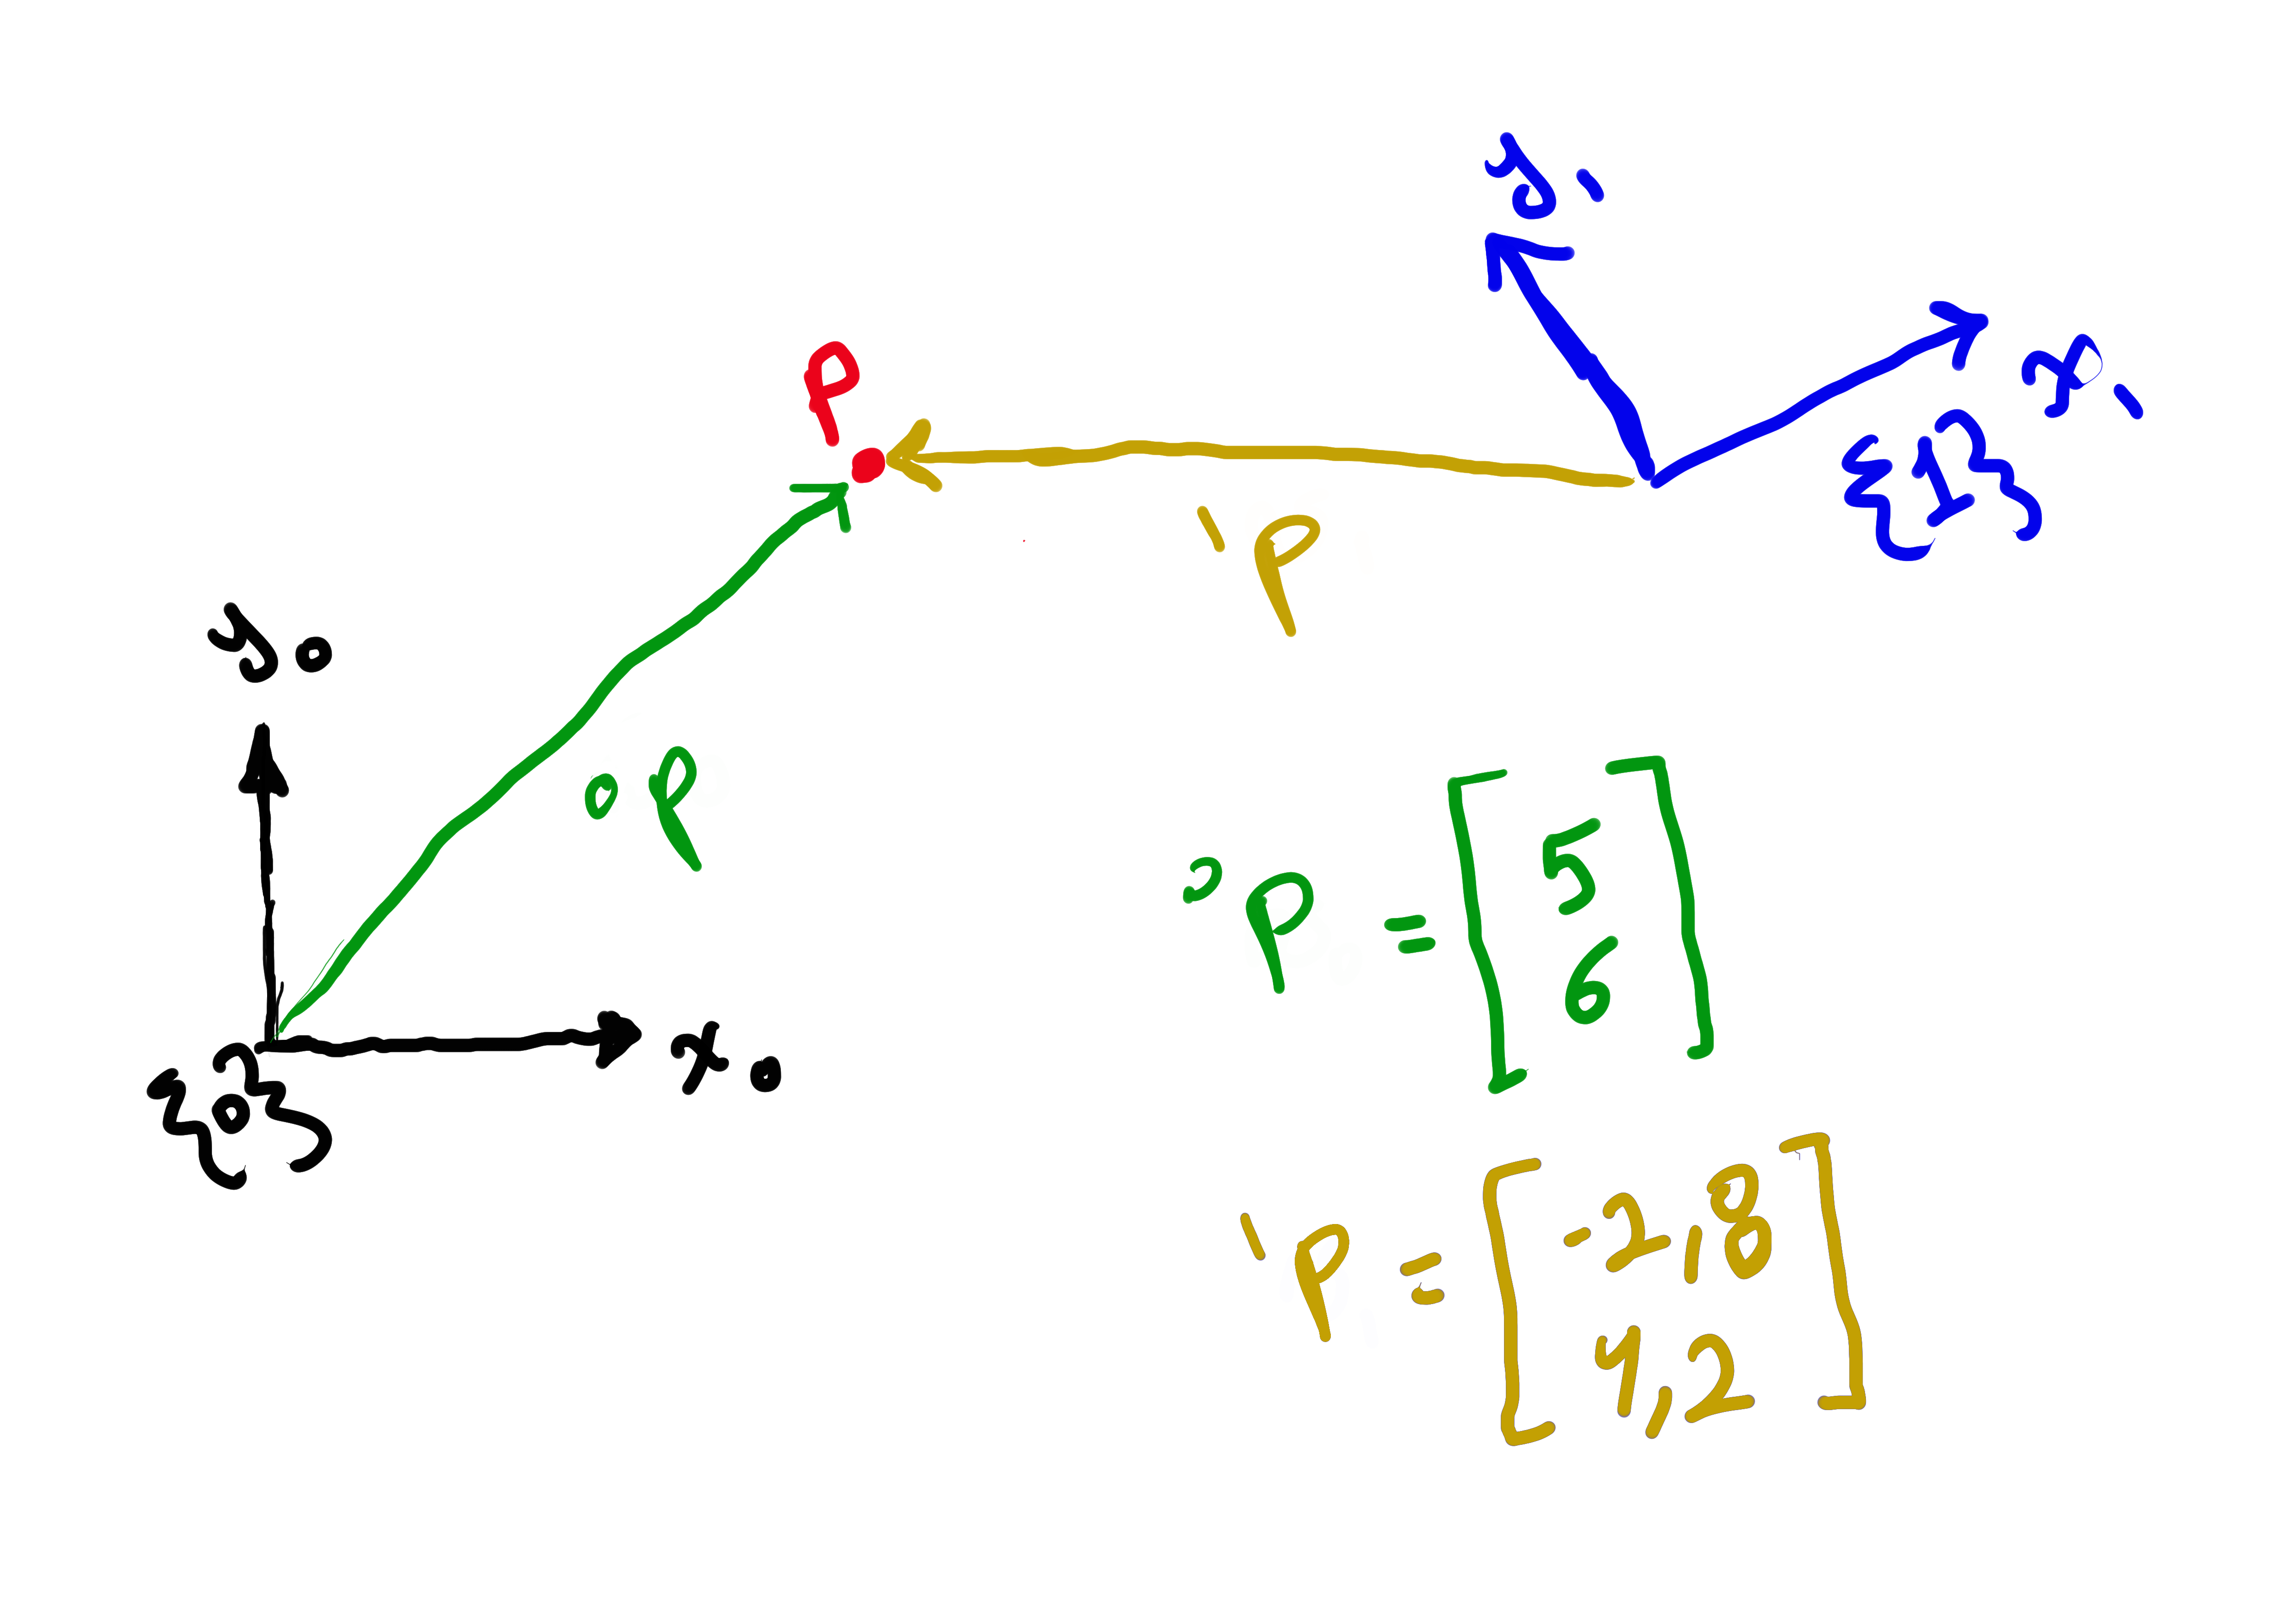 y₁
x₁
{1}
P
¹P
y₀
⁰P
x₀
{0}
⁰P = [ 5
6 ]
¹P = [ -2,8
4,2 ]